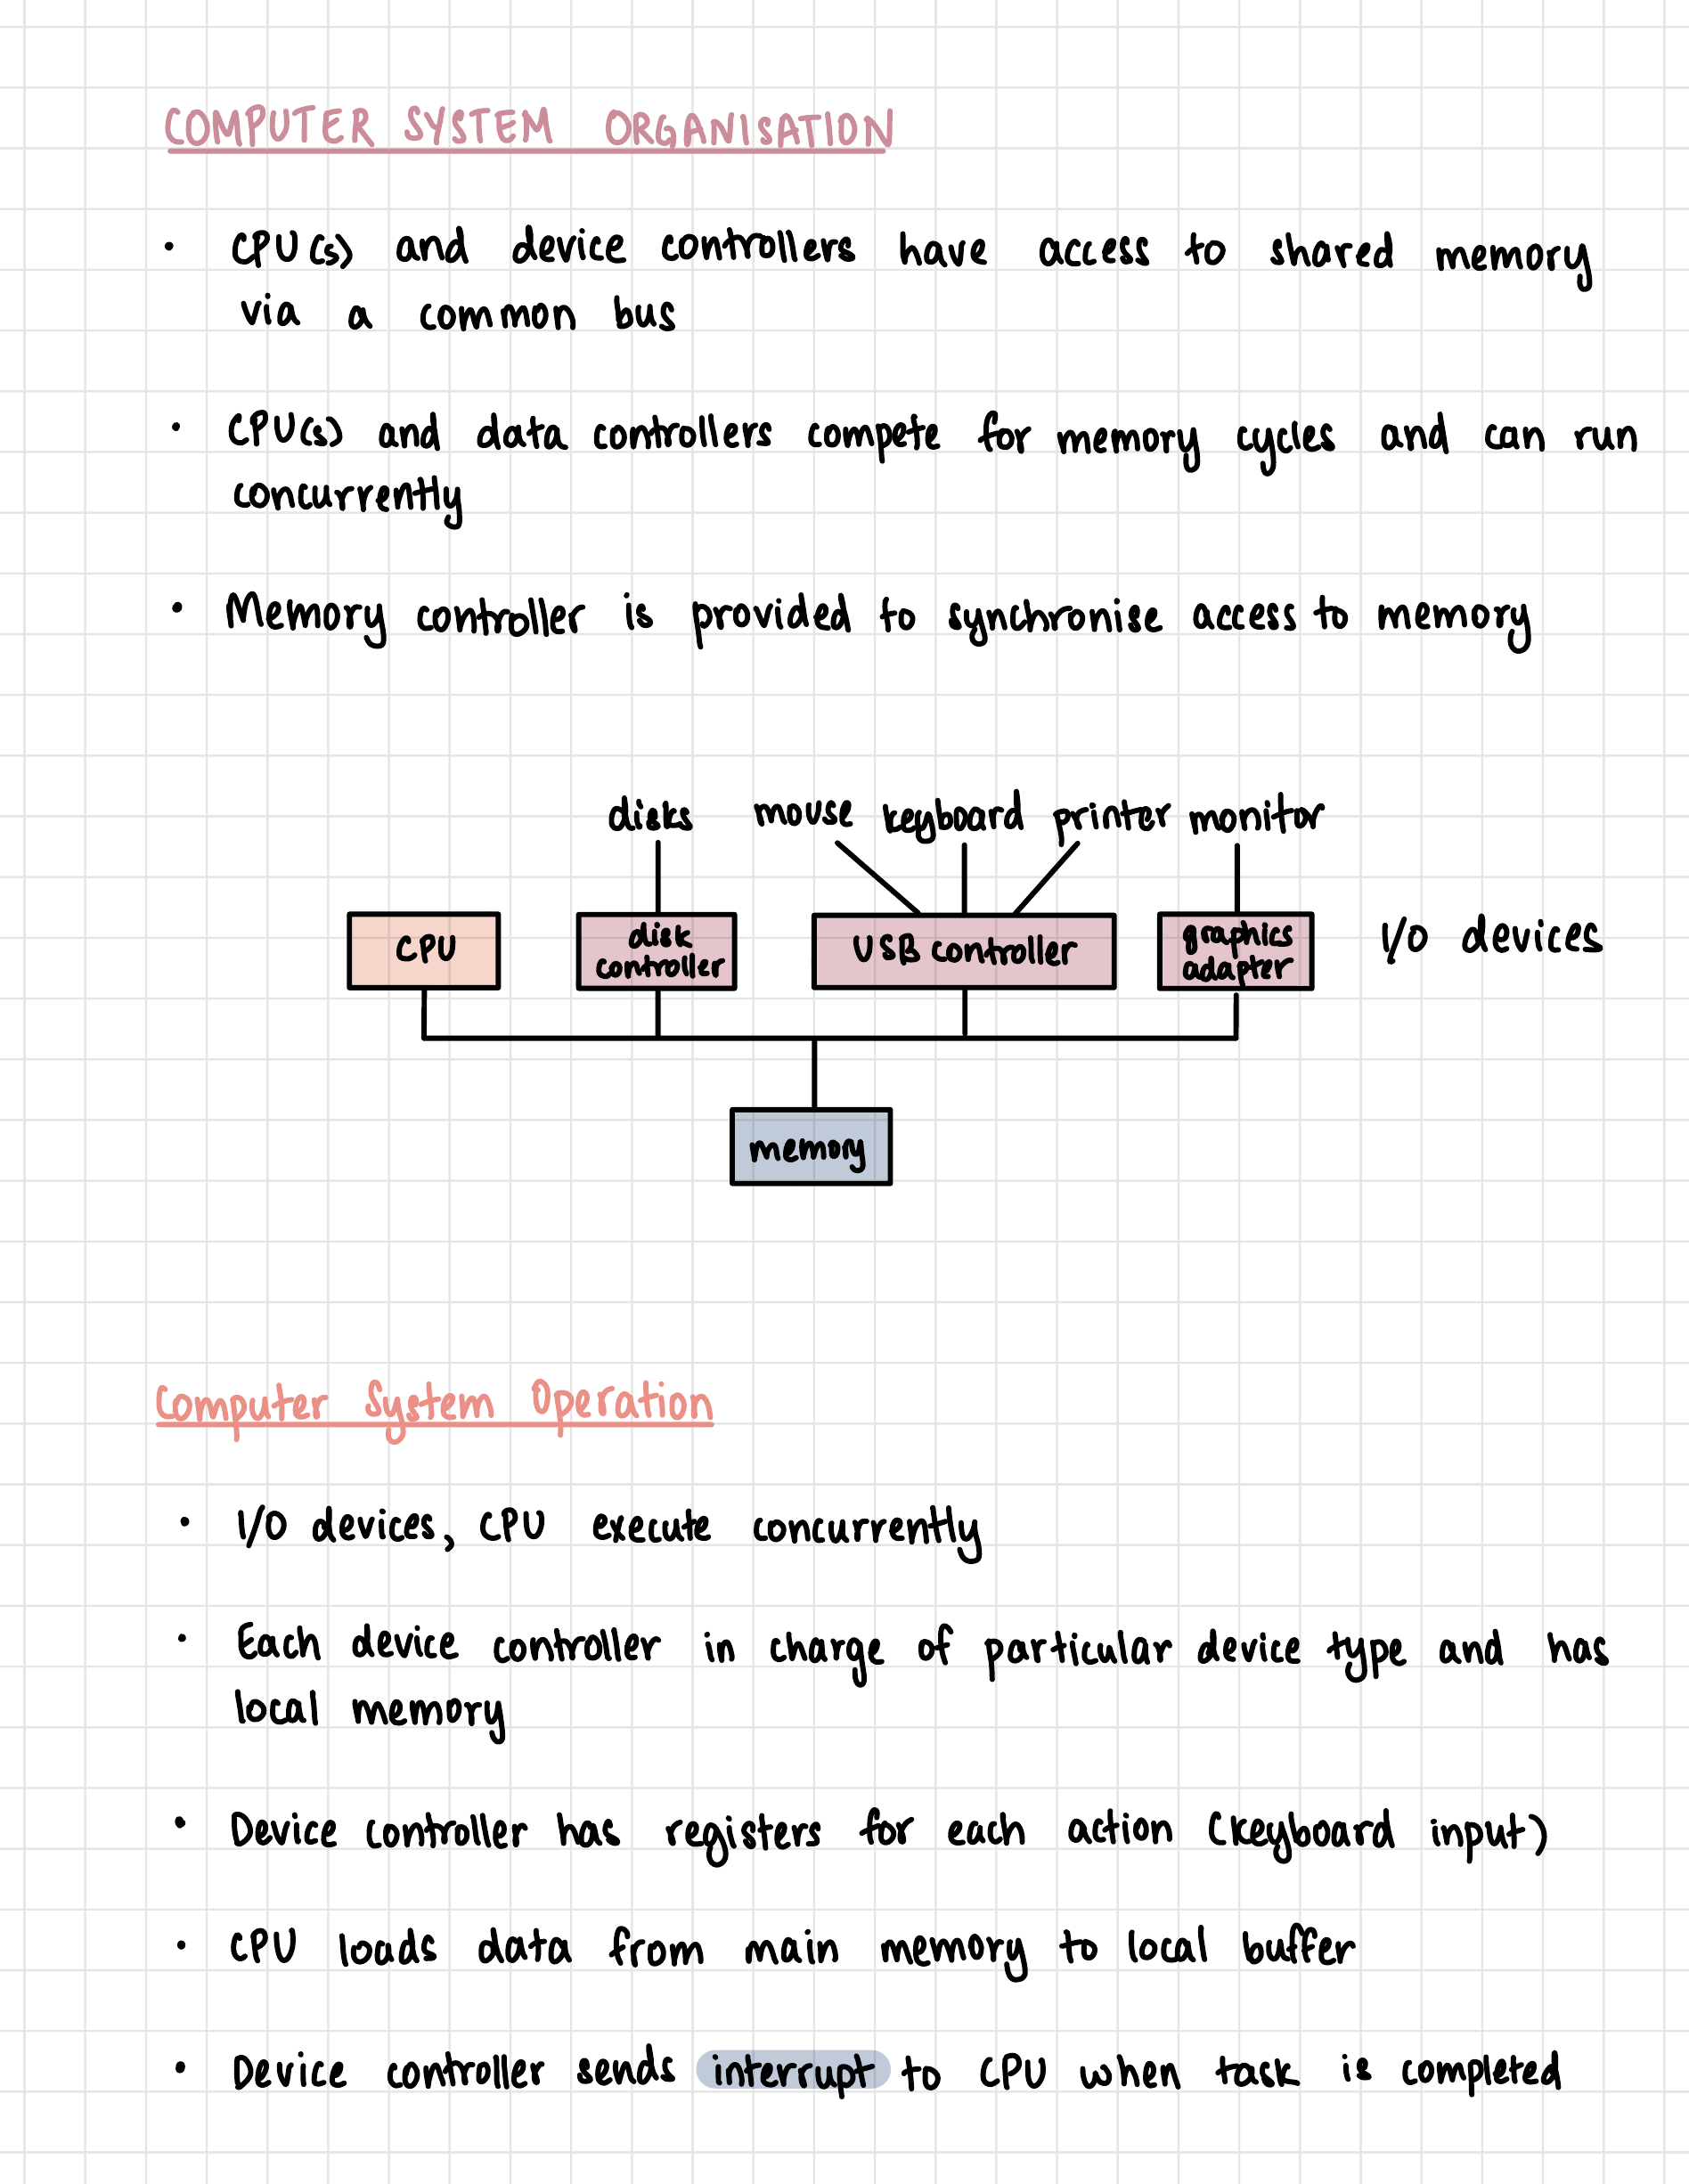 COMPUTER SYSTEM ORGANISATION
• CPU(s) and device controllers have access to shared memory
via a common bus
• CPU(s) and data controllers compete for memory cycles and can run
concurrently
• Memory controller is provided to synchronise access to memory
disks mouse keyboard printer monitor
CPU
disk
controller
USB controller
graphics
adapter
I/O devices
memory
Computer System Operation
• I/O devices, CPU execute concurrently
• Each device controller in charge of particular device type and has
local memory
• Device controller has registers for each action (keyboard input)
• CPU loads data from main memory to local buffer
• Device controller sends interrupt to CPU when task is completed